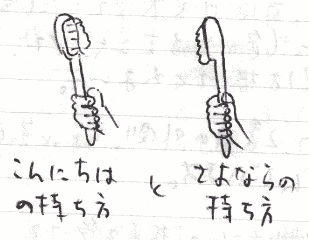 こんにちは
の持ち方
と
さよならの
持ち方